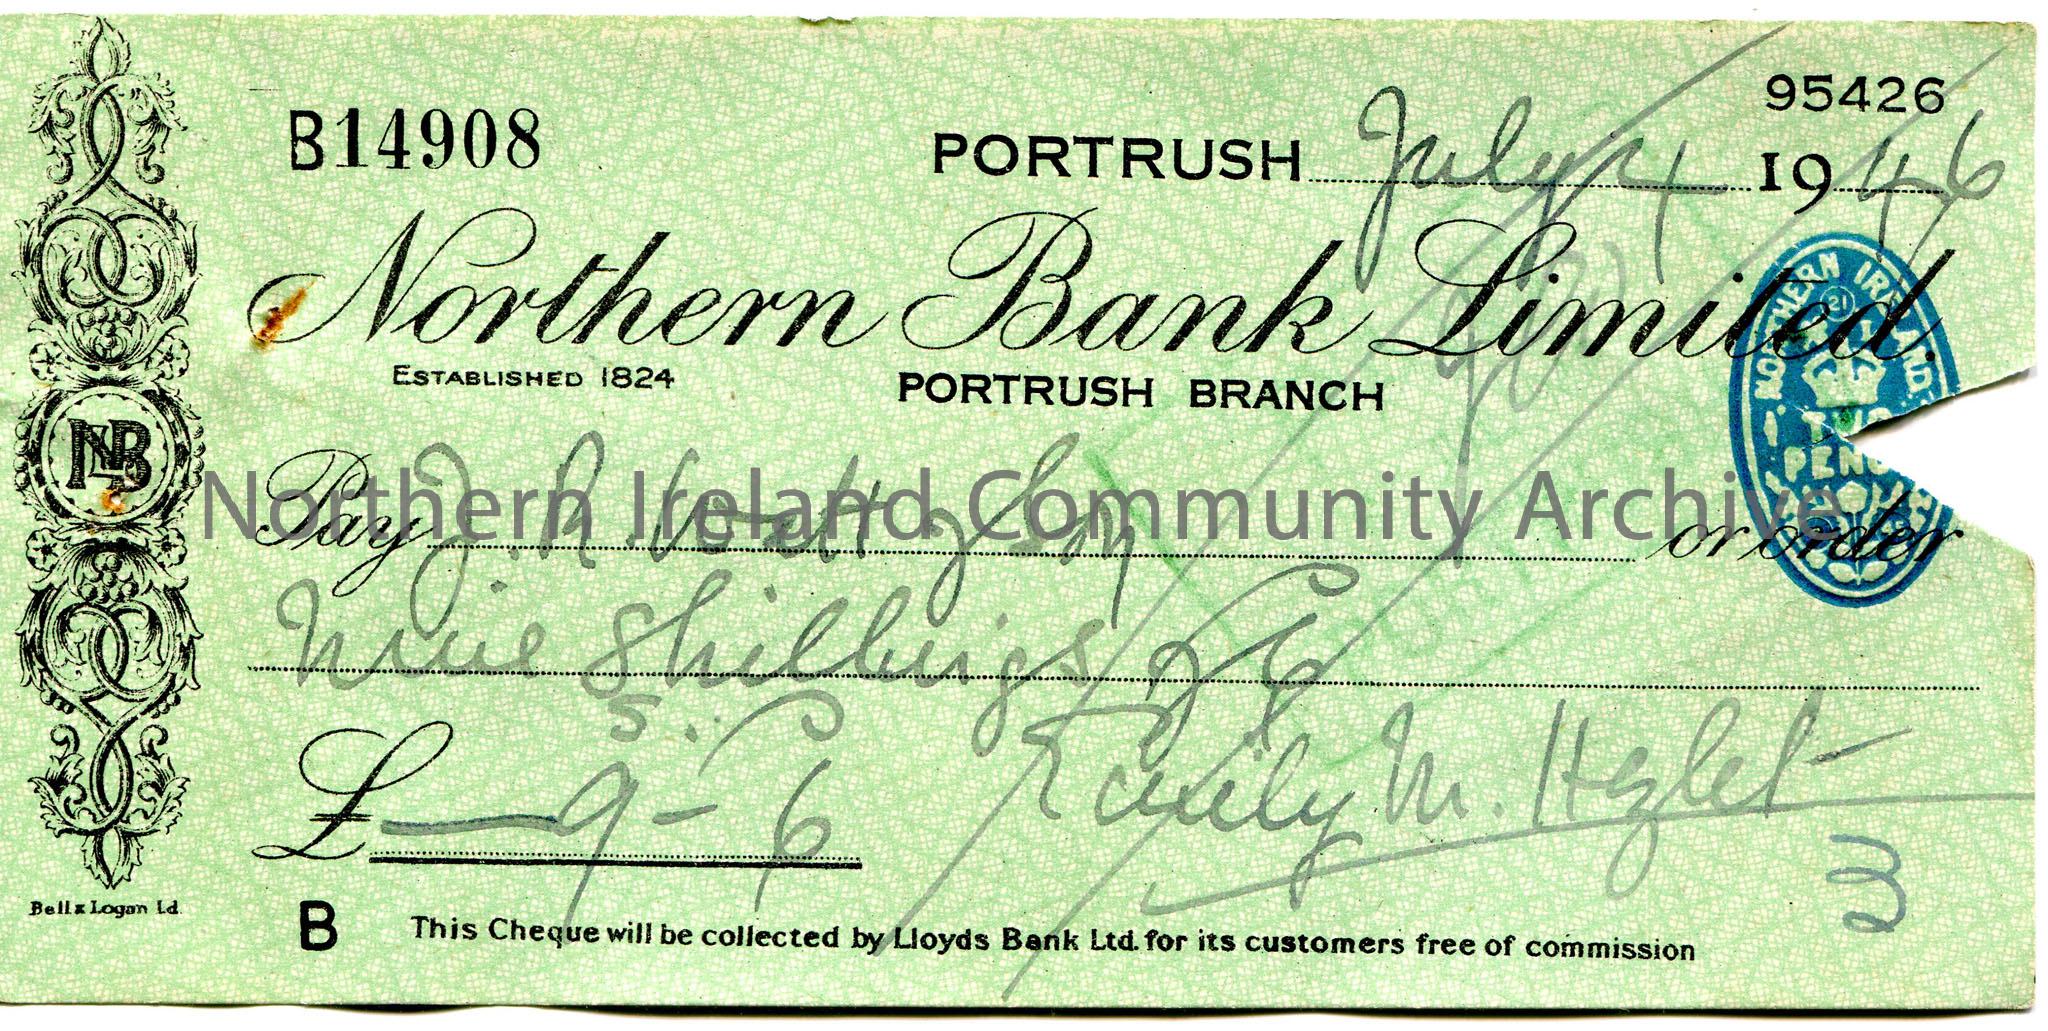 95426
B14908
PORTRUSH July 4 1946
Northern Bank Limited.
ESTABLISHED 1824
PORTRUSH BRANCH
NORTHERN IRELAND
21
PEN
NBL
Northern Ireland Community Archive
Pay J. R. or order
Nine shillings & 6
S.
£ — 9 - 6
Emily M. Hezlet
3
Bell & Logan Ld.
B This Cheque will be collected by Lloyds Bank Ltd. for its customers free of commission